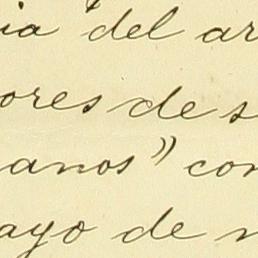 ia del ar
ores de s
anos" con
ayo de n